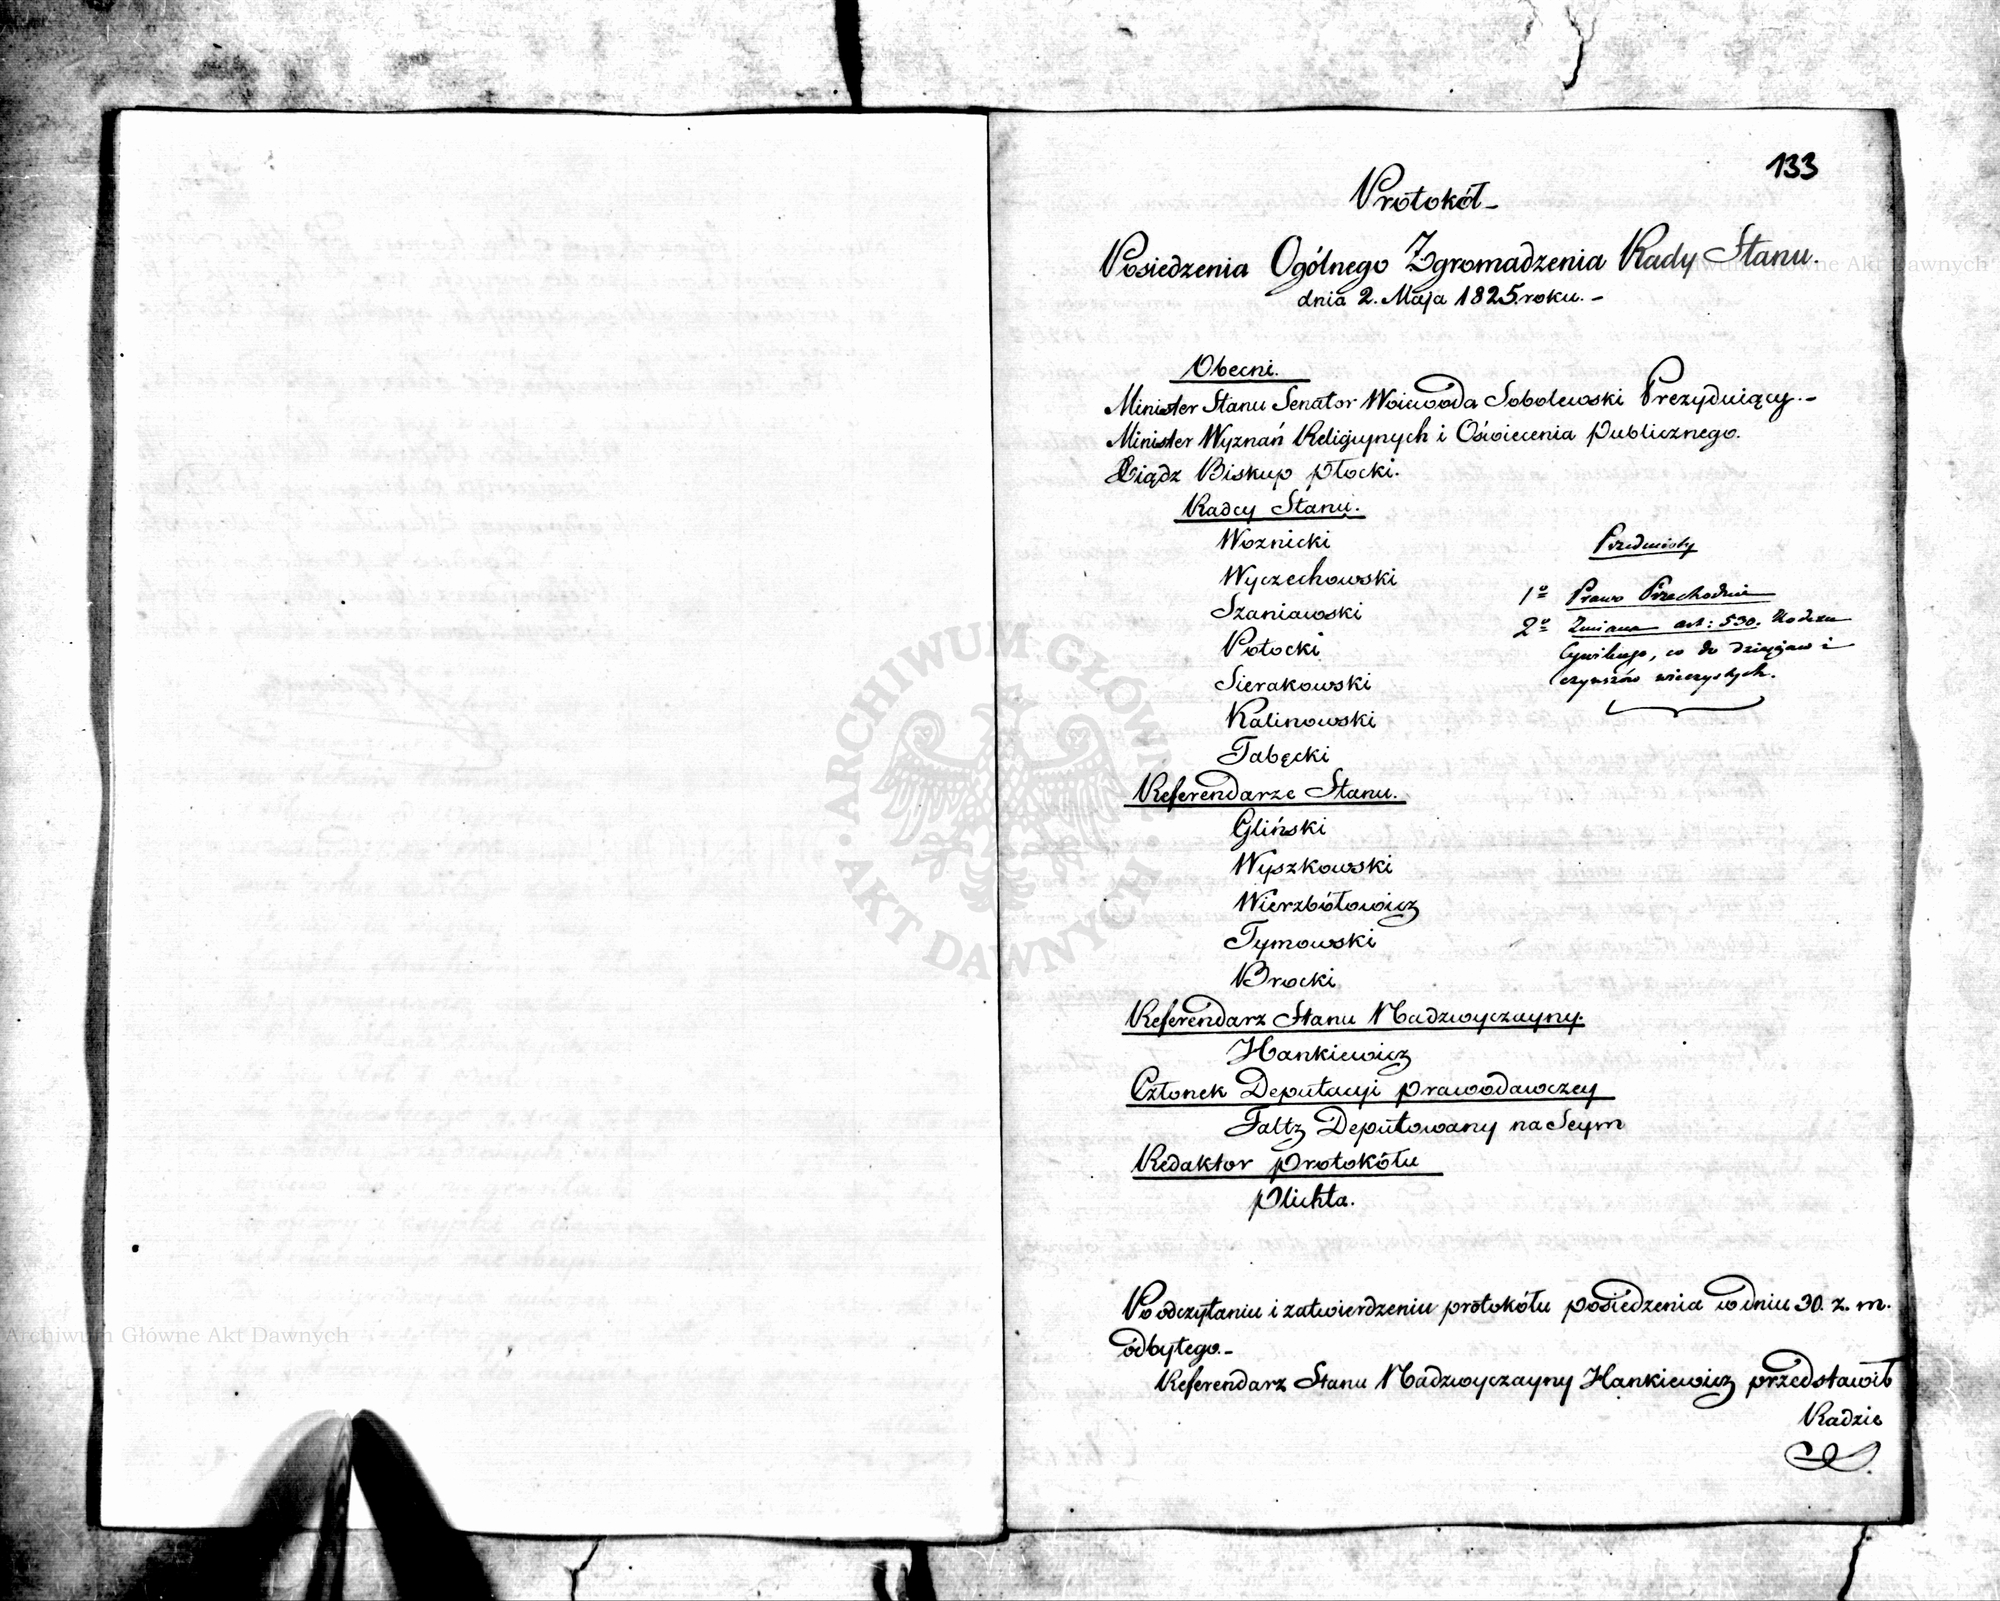 133
Protokół
Posiedzenia Ogólnego Zgromadzenia Rady Stanu.
dnia 2. Maja 1825. roku.
Obecni.
Minister Stanu Senator Woiewoda Sobolewski Prezyduiący.
Minister Wyznań Religiynych i Oświecenia Publicznego.
Xiądz Biskup Płocki.
Radcy Stanu.
Woznicki
Wyczechowski
Szaniawski
Potocki
Sierakowski
Kalinowski
Tabęcki
Przedmioty
1º Prawo Przechodnie
2º Zmiana art: 530. Kodexu
Cywilnego, co do dzierżaw i
czynszów wieczystych.
Referendarze Stanu.
Gliński
Wyszkowski
Wierzbółowicz
Tymowski
Brocki
Referendarz Stanu Nadzwyczayny.
Hankiewicz
Członek Deputacyi prawodawczey
Faltz Deputowany na Seym
Redaktor protokółu
Plichta.
Po odczytaniu i zatwierdzeniu protokółu posiedzenia w dniu 30. z. m.
odbytego.
Referendarz Stanu Nadzwyczayny Hankiewicz przedstawił
Radzie
ARCHIWUM GŁÓWNE AKT DAWNYCH
Archiwum Główne Akt Dawnych
Archiwum Główne Akt Dawnych